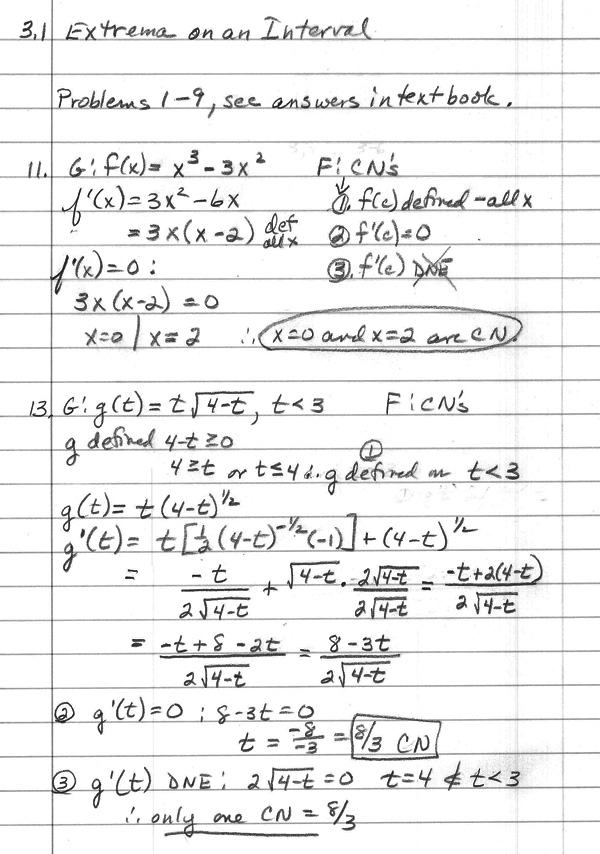 3.1 Extrema on an Interval
Problems 1-9, see answers in textbook.
11. G: f(x) = x³ - 3x² F: CN's
f'(x) = 3x² - 6x ①. f(c) defined - all x
= 3x(x-2) def all x ② f'(c) = 0
f'(x) = 0 : ③. f'(c) DNE
3x(x-2) = 0
x=0 | x=2 ∴ x=0 and x=2 are CN.
13. G: g(t) = t√(4-t), t<3 F: CN's
g defined 4-t ≥ 0 ①
4 ≥ t or t ≤ 4 ∴ g defined on t<3
g(t) = t(4-t)^(1/2)
g'(t) = t[1/2(4-t)^(-1/2)(-1)] + (4-t)^(1/2)
= -t/(2√(4-t)) + √(4-t) · 2√(4-t)/(2√(4-t)) = (-t+2(4-t))/(2√(4-t))
= (-t+8-2t)/(2√(4-t)) = (8-3t)/(2√(4-t))
② g'(t) = 0 : 8-3t = 0
t = -8/-3 = 8/3 CN
③ g'(t) DNE : 2√(4-t) = 0 t=4 ∉ t<3
∴ only one CN = 8/3